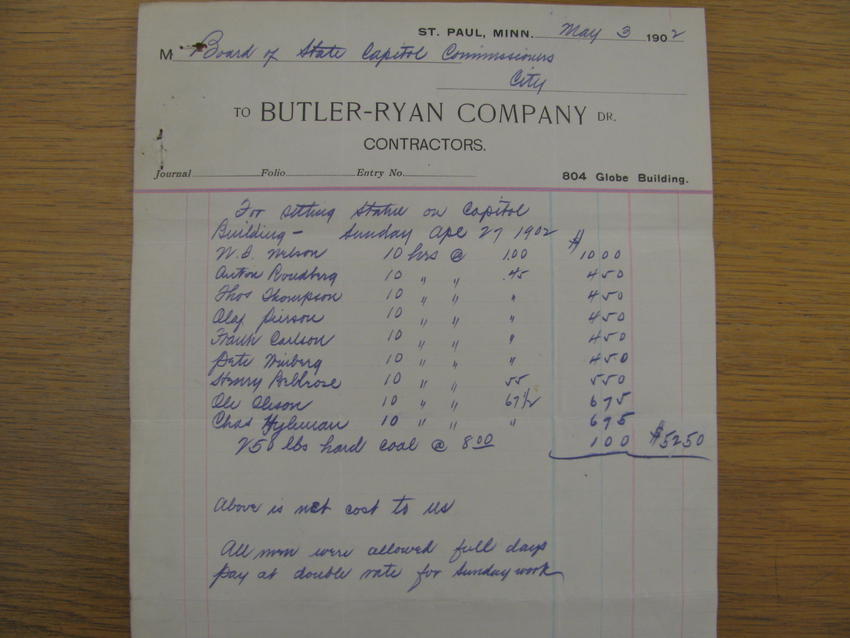 ST. PAUL, MINN. May 3 1902
M Board of State Capitol Commissioners
City
TO BUTLER-RYAN COMPANY DR.
CONTRACTORS.
Journal Folio Entry No. 804 Globe Building.
For setting Statue on Capitol
Building – Sunday Apl 27 1902 $
W.B. Nelson 10 hrs @ 1.00 10 00
Anton Roudberg 10 " " .45 4 50
Thos Thompson 10 " " " 4 50
Olaf Pierson 10 " " " 4 50
Frank Carlson 10 " " " 4 50
Pete Winberg 10 " " " 4 50
Henry 10 " " 55 5 50
Ole Oleson 10 " " 67 1/2 6 75
Chas 10 " " " 6 75
250 lbs hard coal @ 8.00 1 00 $52 50
Above is net cost to us
All men were allowed full days
pay at double rate for Sunday work